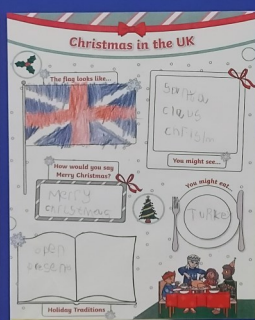 Christmas in the UK
The flag looks like...
Santa
claus
You might see...
How would you say
Merry Christmas?
Merry
christmas
You might eat...
Turkey
open
Holiday Traditions